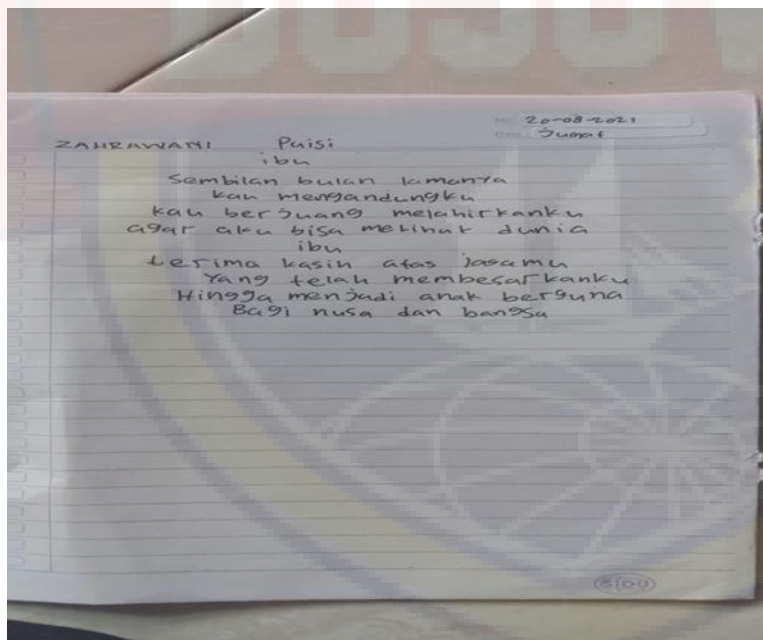 20-08-2021
Jumat
ZAHRAWANI Puisi
ibu
Sembilan bulan lamanya
kau mengandungku
kau berjuang melahirkanku
agar aku bisa melihat dunia
ibu
terima kasih atas jasamu
Yang telah membesarkanku
Hingga menjadi anak berguna
Bagi nusa dan bangsa